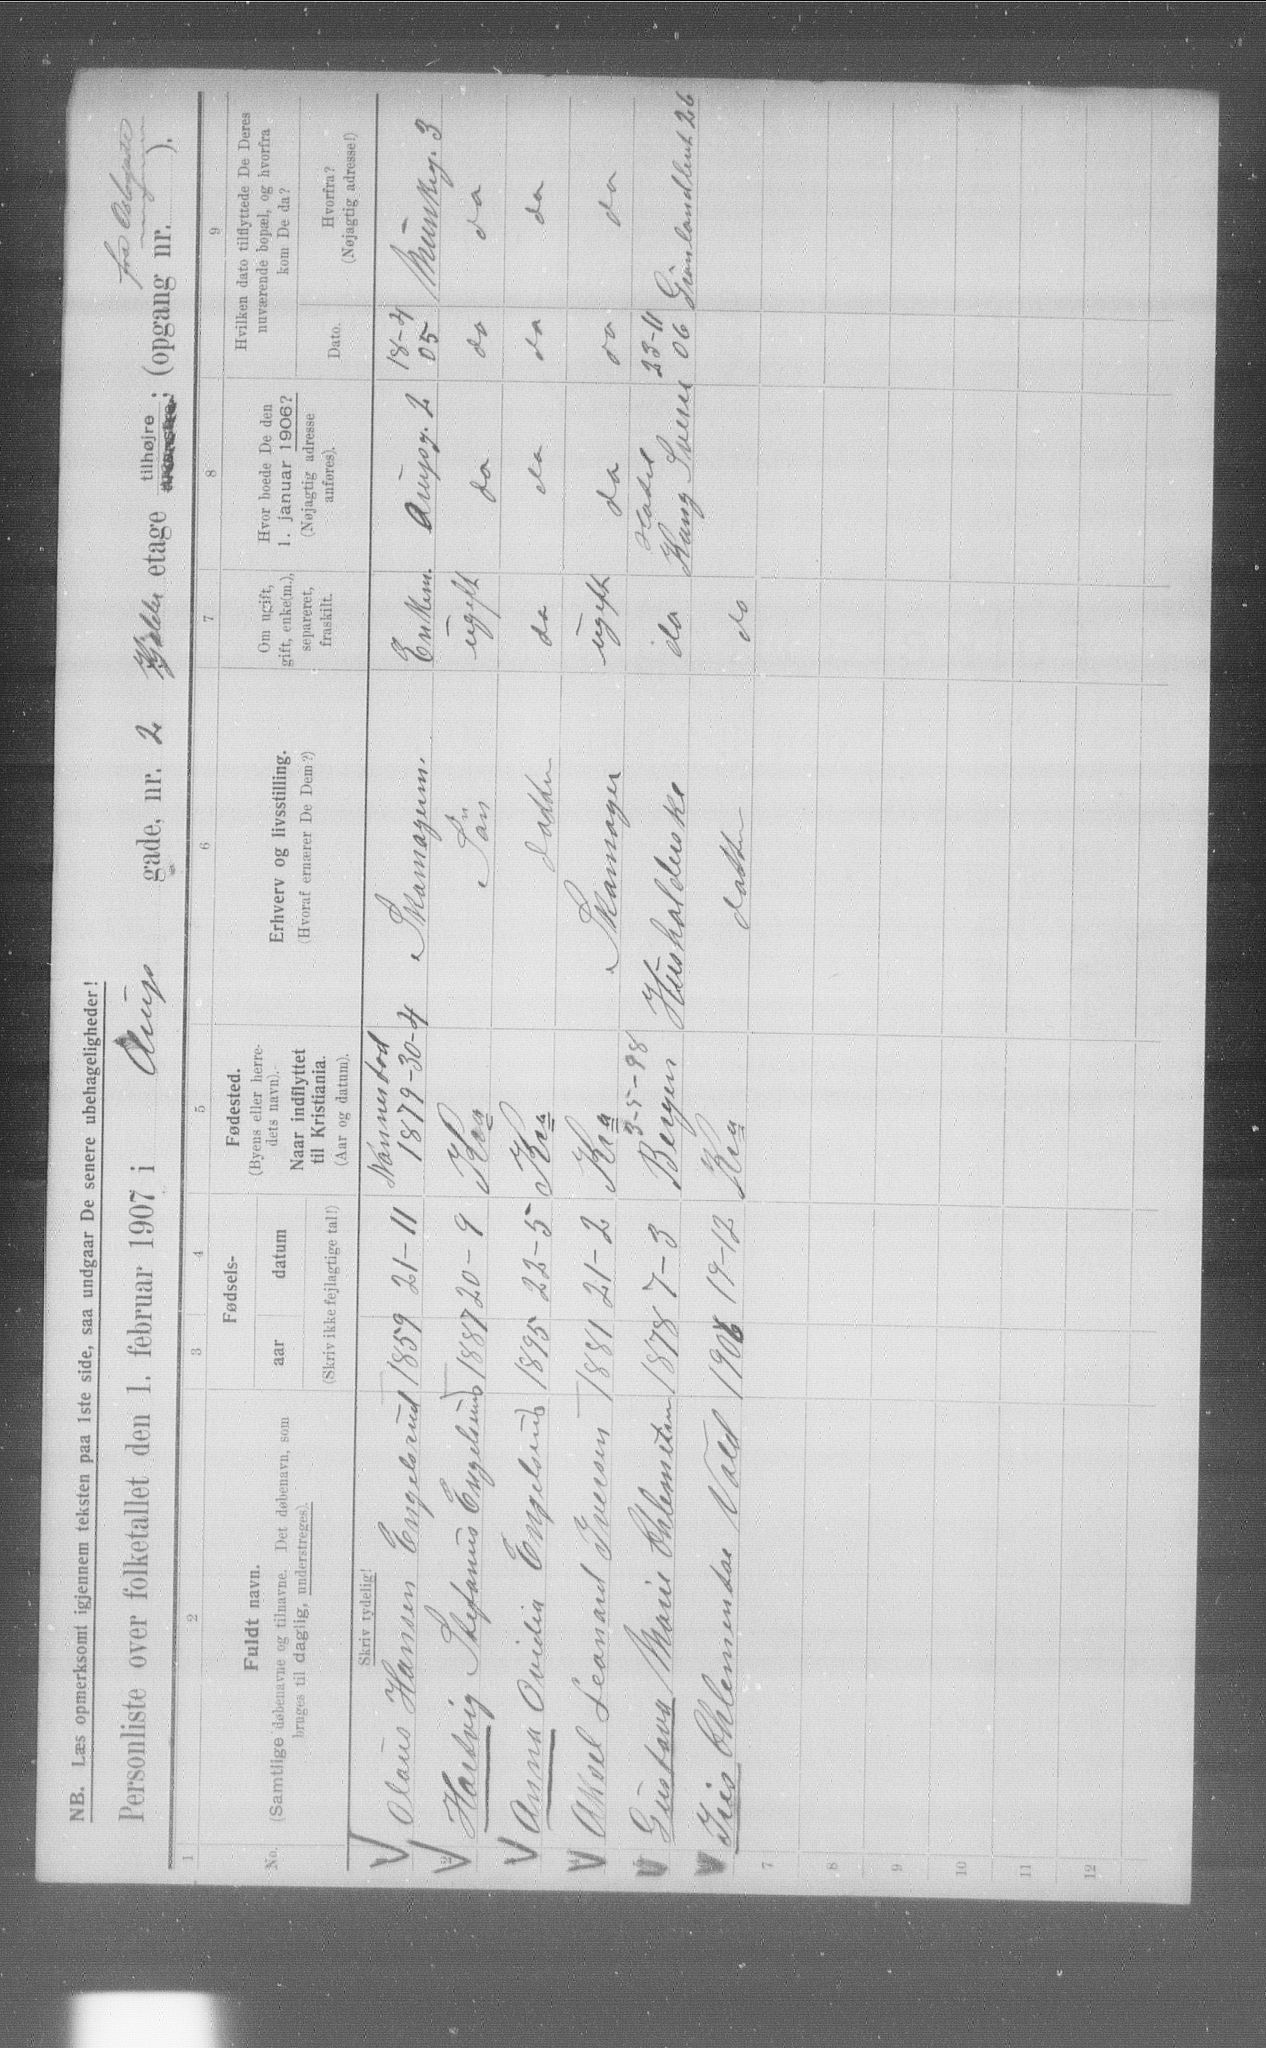 NB. Læs opmerksomt igjennem teksten paa 1ste side, saa undgaar De senere ubehageligheder!
fra Oslogate
Personliste over folketallet den 1. februar 1907 i Arups gade, nr. 2 Kjelder etage tilhøjre; (opgang nr. ).
1 2 3 4 5 6 7 8 9
No.
Fuldt navn.
(Samtlige døbenavne og tilnavne. Det døbenavn, som
bruges til daglig, understreges).
Skriv tydelig!
Fødsels-
aar datum
(Skriv ikke fejlagtige tal!)
Fødested.
(Byens eller herre-
dets navn).
Naar indflyttet
til Kristiania.
(Aar og datum).
Erhverv og livsstilling.
(Hvoraf ernærer De Dem?)
Om ugift,
gift, enke(m.),
separeret,
fraskilt.
Hvor boede De den
1. januar 1906?
(Nøjagtig adresse
anføres).
Hvilken dato tilflyttede De Deres
nuværende bopæl, og hvorfra
kom De da?
Dato.
Hvorfra?
(Nøjagtig adresse!)
Olaus Hansen Engelsrud 1859 21-11 Nannestad 1879-30-4 Skomagerm. Enkem. Arupsg. 2 18-4 05 Munkeg. 3
2 Hartvig Stefanus Engelsrud 1887 20-9 Kra Søn ugift da da da
Anna Ovidia Engelsrud 1895 22-5 Kra datter da da da da
Aksel Leonard Iversen 1881 21-2 Kra Skomager ugift da da da
Gustava Marie Chlemetsen 1878 7-3 Bergen 3-5-98 Husholderske do Hotel Kung Sverre 23-11 06 Grønlandsleret 26
Chlemendse Vald 1906 19-12 Kra datter do
7
8
9
10
11
12